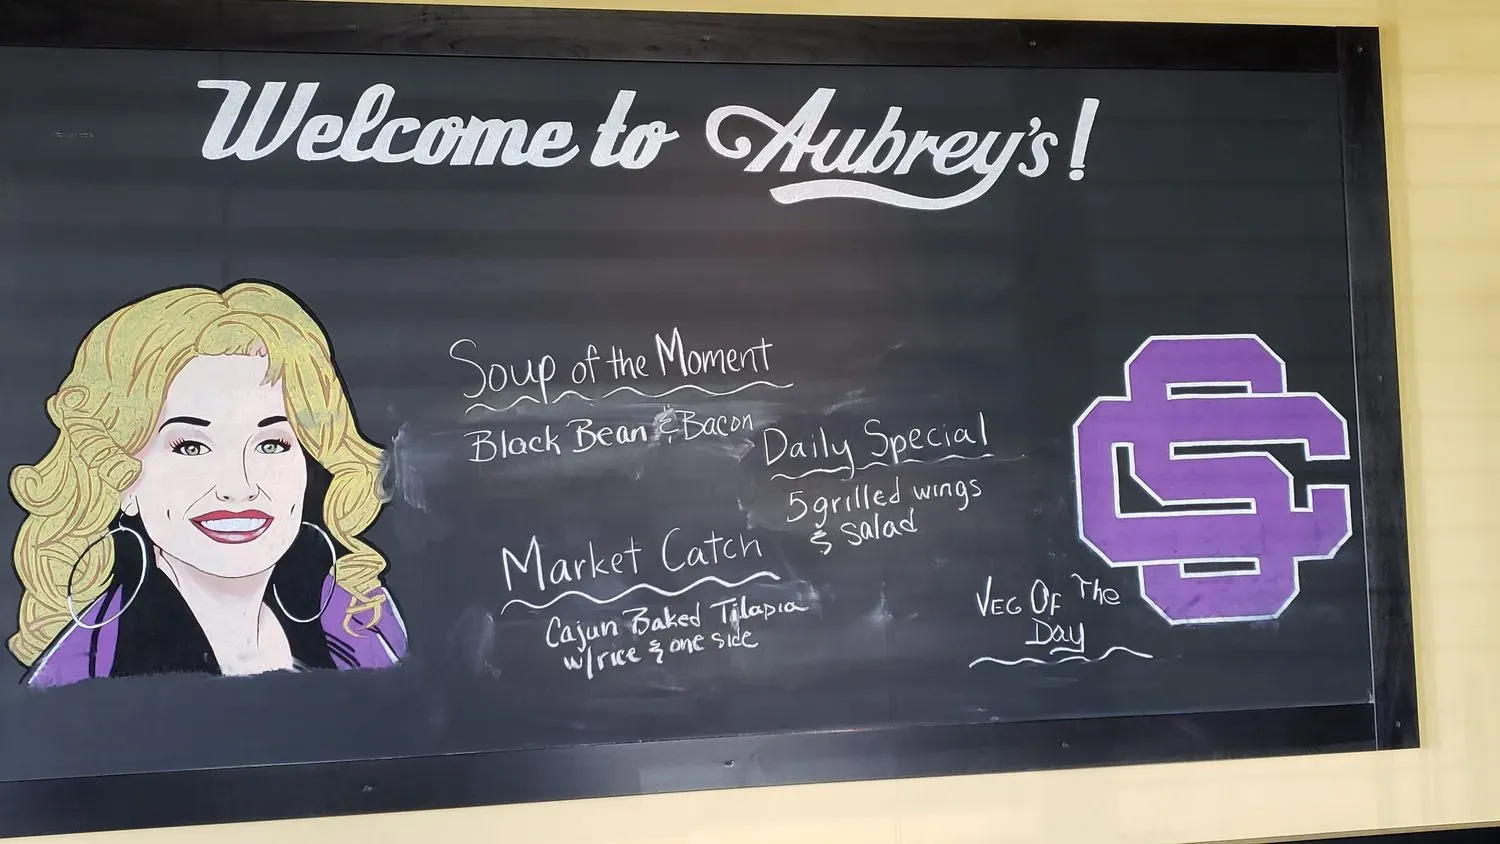 Welcome to Aubrey's!
Soup of the Moment
Black Bean & Bacon
Daily Special
5 grilled wings
& salad
Market Catch
Cajun Baked Tilapia
w/rice & one side
VEG OF The
Day
SC